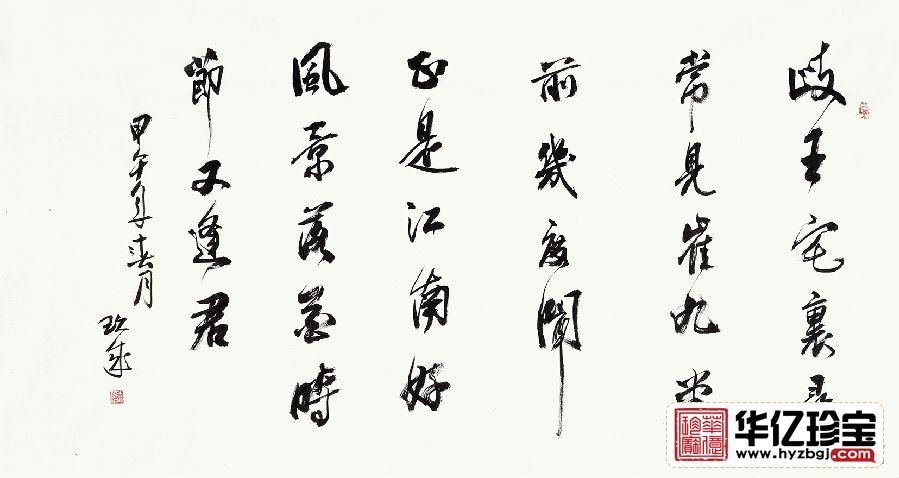 岐王宅裏尋
常見崔九堂
前幾度聞
正是江南好
風景落花時
節又逢君
甲午年春月
華億珍寶
华亿珍宝
www.hyzbgj.com